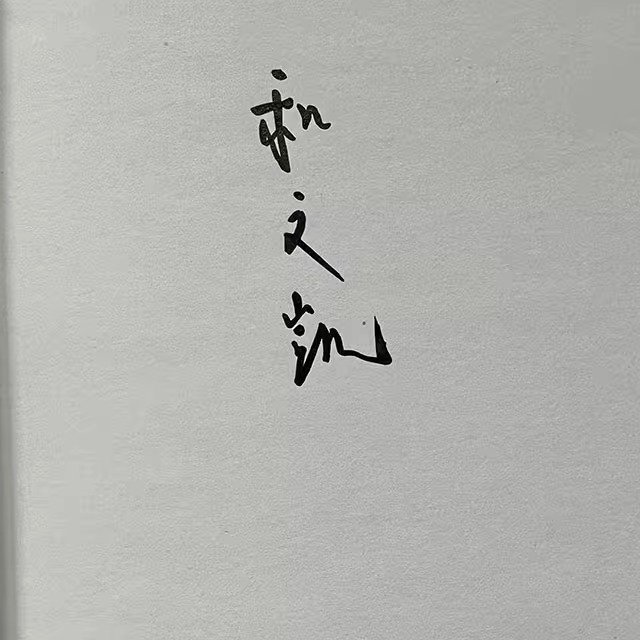 和文凯